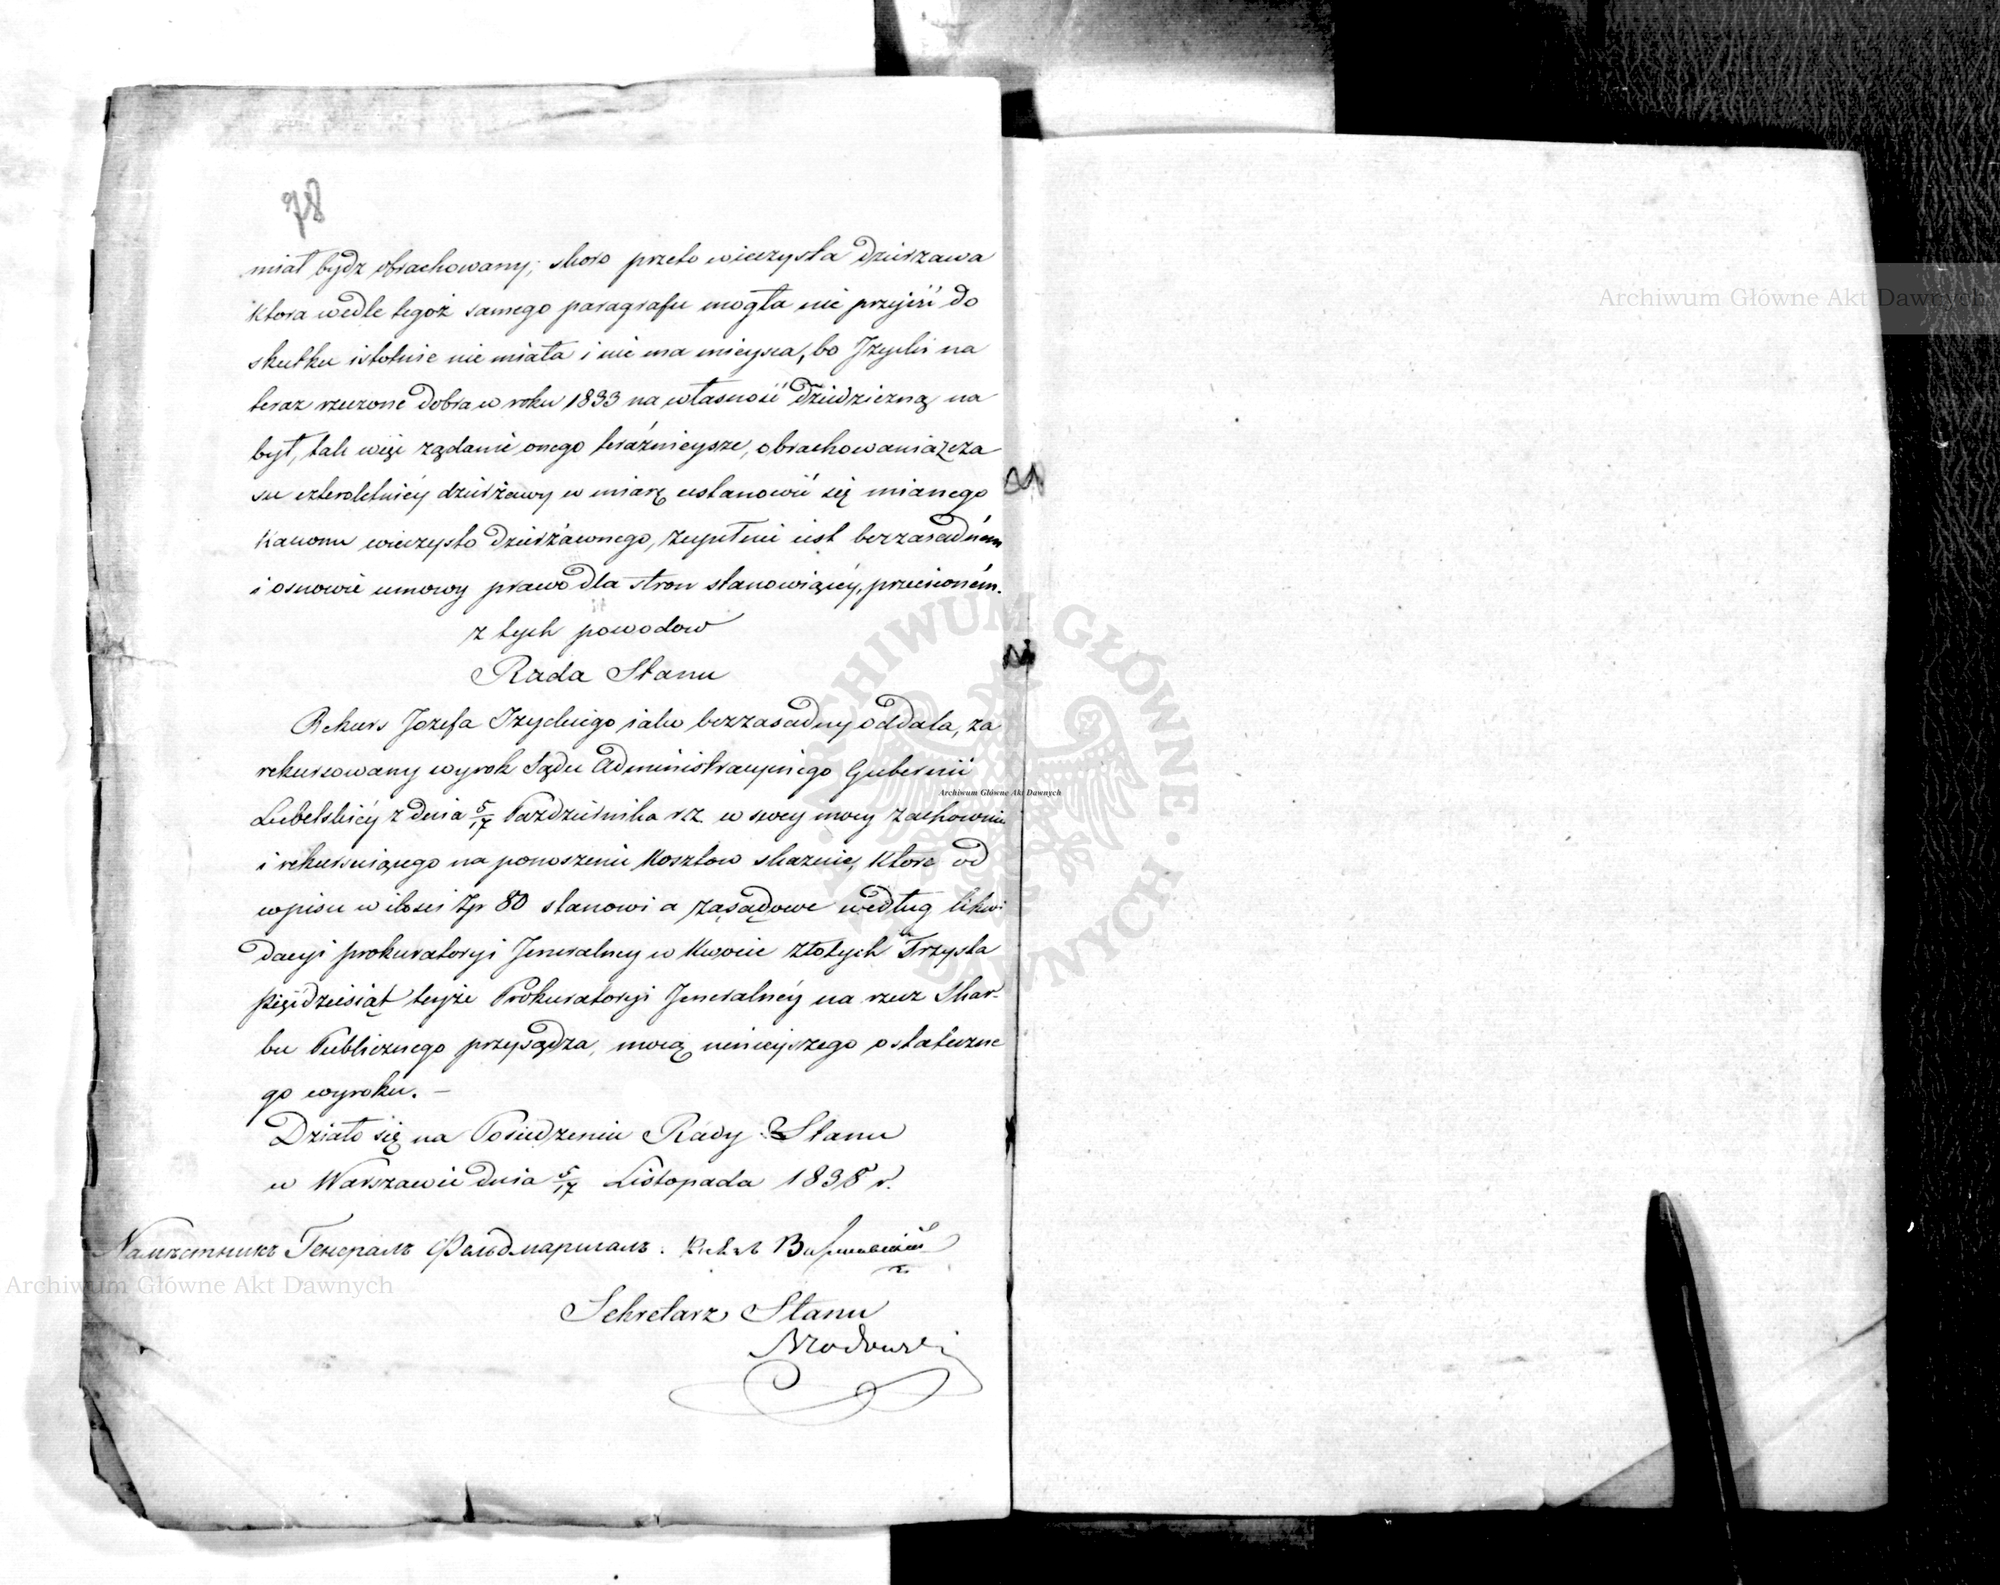 78
miał bydź obrachowany; skoro przeto wieczysta dzierzawa
ktora wedle tegoż samego paragrafu mogła nie przyiść do
skutku istotnie nie miała i nie ma mieysca, bo Jżycki na
teraz rzeczone dobra w roku 1833 na własność dziedziczną na
był, tak więc żądanie onego teraźnieysze, obrachowania z cza
su czteroletniéy dzierżawy w miarę ustanowić się mianego
Kanonu wieczysto dzierżawnego, zupełnie iest bezzasadném
i osnowie umowy prawo dla stron stanowiącéy, przeciwném.
z tych powodow
Rada Stanu
Rekurs Jozefa Jżyckiego iako bezzasadny oddala, za
rekursowany wyrok Sądu Administracyinego Gubernii
Lubelskiéy z dnia 5/17 Października r.z. w swey mocy zachowuie
i rekursuiącego na ponoszenie Kosztow skazuie, ktore od
wpisu w ilosci Zp 80 stanowi a zasądowe według likwi
dacyi prokuratoryi Jeneralney w Kwocie złotych Trzysta
pięćdziesiąt teyże Prokuratoryi Jeneralnéy na rzecz Skar-
bu Publicznego przysądza, mocą ninieyszego ostateczne
go wyroku. —
Działo się na Posiedzeniu Rady Stanu
w Warszawie dnia 5/17 Listopada 1838 r.
Намѣстникъ Генералъ Фельдмаршалъ. Князь Варшавскій
Sekretarz Stanu
Brodowski
Archiwum Główne Akt Dawnych
Archiwum Główne Akt Dawnych
Archiwum Główne Akt Dawnych
ARCHIWUM GŁÓWNE AKT DAWNYCH